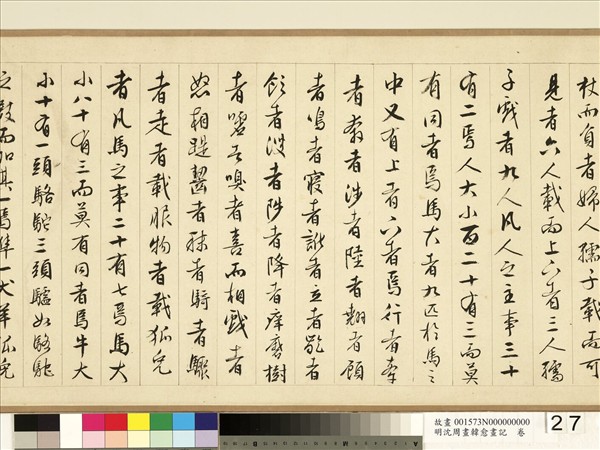 杖而負者婦人孺子載而可
見者六人載而上下者三人孺
子戲者九人凡人之主事三十
有二焉人大小百二十有三而莫
有同者焉馬大者九匹於馬之
中又有上者下者焉行者牽
者奔者涉者陸者翹者顧
者鳴者寢者訛者立者齕者
飲者溲者陟者降者痒磨樹
者噓者嗅者喜而相戲者
怒相踶齧者秣者騎者驟
者走者載服物者載狐兔
者凡馬之事二十有七焉馬大
小八十有三而莫有同者焉牛大
小十有一頭駱駝三頭驢如駱駝
之數而加其一焉隼一犬羊狐兔
故畫 001573N000000000
明沈周畫韓愈畫記 卷
27